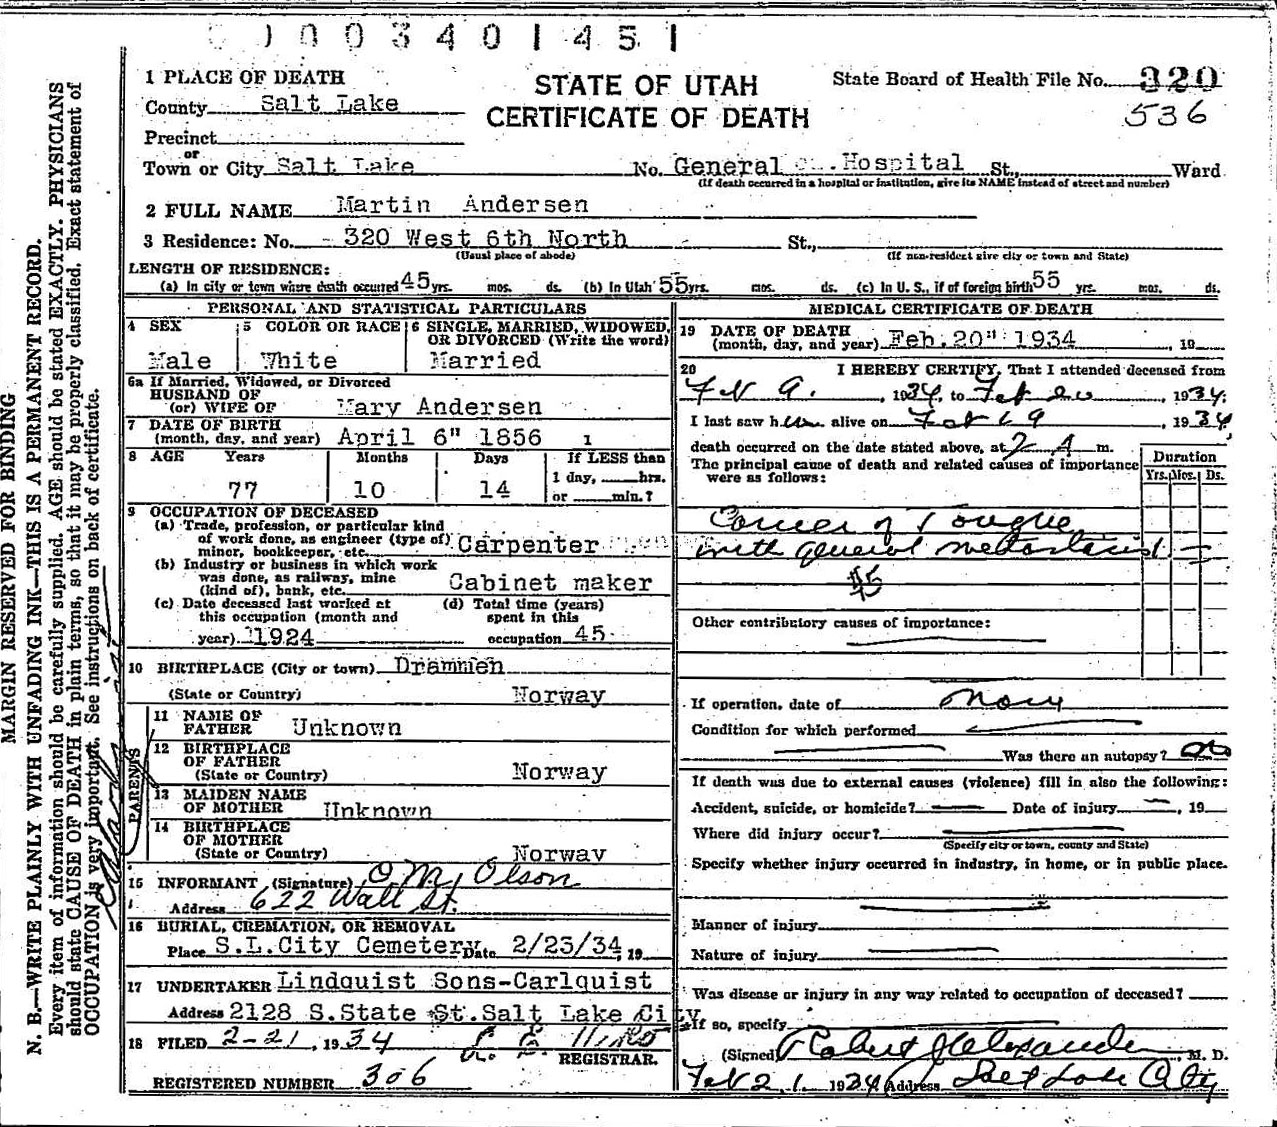 0 0 3 4 0 1 4 5 1
1 PLACE OF DEATH
STATE OF UTAH
CERTIFICATE OF DEATH
State Board of Health File No. 320
536
County Salt Lake
Precinct
or
Town or City Salt Lake No. General Hospital St., Ward
(If death occurred in a hospital or institution, give its NAME instead of street and number)
2 FULL NAME Martin Andersen
3 Residence: No. 320 West 6th North St.,
(Usual place of abode) (If non-resident give city or town and State)
LENGTH OF RESIDENCE:
(a) In city or town where death occurred 45 yrs. mos. ds. (b) In Utah 55 yrs. mos. ds. (c) In U. S., if of foreign birth 55 yrs. mos. ds.
PERSONAL AND STATISTICAL PARTICULARS
4 SEX 5 COLOR OR RACE 6 SINGLE, MARRIED, WIDOWED,
OR DIVORCED (Write the word)
Male White Married
6a If Married, Widowed, or Divorced
HUSBAND OF
(or) WIFE OF Mary Andersen
7 DATE OF BIRTH
(month, day, and year) April 6" 1856 1
8 AGE Years Months Days If LESS than
1 day, hrs.
77 10 14 or min.?
9 OCCUPATION OF DECEASED
(a) Trade, profession, or particular kind
of work done, as engineer (type of)
minor, bookkeeper, etc. Carpenter
(b) Industry or business in which work
was done, as railway, mine
(kind of), bank, etc. Cabinet maker
(c) Date deceased last worked at (d) Total time (years)
this occupation (month and spent in this
year) 1924 occupation 45
10 BIRTHPLACE (City or town) Drammen
(State or Country) Norway
PARENTS
11 NAME OF
FATHER Unknown
12 BIRTHPLACE
OF FATHER
(State or Country) Norway
13 MAIDEN NAME
OF MOTHER Unknown
14 BIRTHPLACE
OF MOTHER
(State or Country) Norway
15 INFORMANT (Signature) O M Olson
Address 622 Wall St.
16 BURIAL, CREMATION, OR REMOVAL
Place S.L.City Cemetery Date 2/23/34, 19
17 UNDERTAKER Lindquist Sons-Carlquist
Address 2128 S.State St.Salt Lake City
18 FILED 2-21, 1934
REGISTRAR.
REGISTERED NUMBER 306
MEDICAL CERTIFICATE OF DEATH
19 DATE OF DEATH
(month, day, and year) Feb. 20" 1934, 19
20 I HEREBY CERTIFY, That I attended deceased from
Feb 9. , 1934, to Feb 20 , 1934;
I last saw him alive on Feb 19 , 1934
death occurred on the date stated above, at 2 A m.
The principal cause of death and related causes of importance
were as follows:
Duration
Yrs. Mos. Ds.
Cancer of Tongue
with general metastasis
45
Other contributory causes of importance:
If operation, date of None
Condition for which performed
Was there an autopsy? no
If death was due to external causes (violence) fill in also the following:
Accident, suicide, or homicide? Date of injury , 19
Where did injury occur?
(Specify city or town, county and State)
Specify whether injury occurred in industry, in home, or in public place.
Manner of injury
Nature of injury
Was disease or injury in any way related to occupation of deceased?
If so, specify
(Signed) Robert J Alexander, M. D.
Feb 21 1934 Address Salt Lake City
MARGIN RESERVED FOR BINDING
N. B.—WRITE PLAINLY WITH UNFADING INK—THIS IS A PERMANENT RECORD.
Every item of information should be carefully supplied. AGE should be stated EXACTLY. PHYSICIANS
should state CAUSE OF DEATH in plain terms, so that it may be properly classified. Exact statement of
OCCUPATION is very important. See instructions on back of certificate.